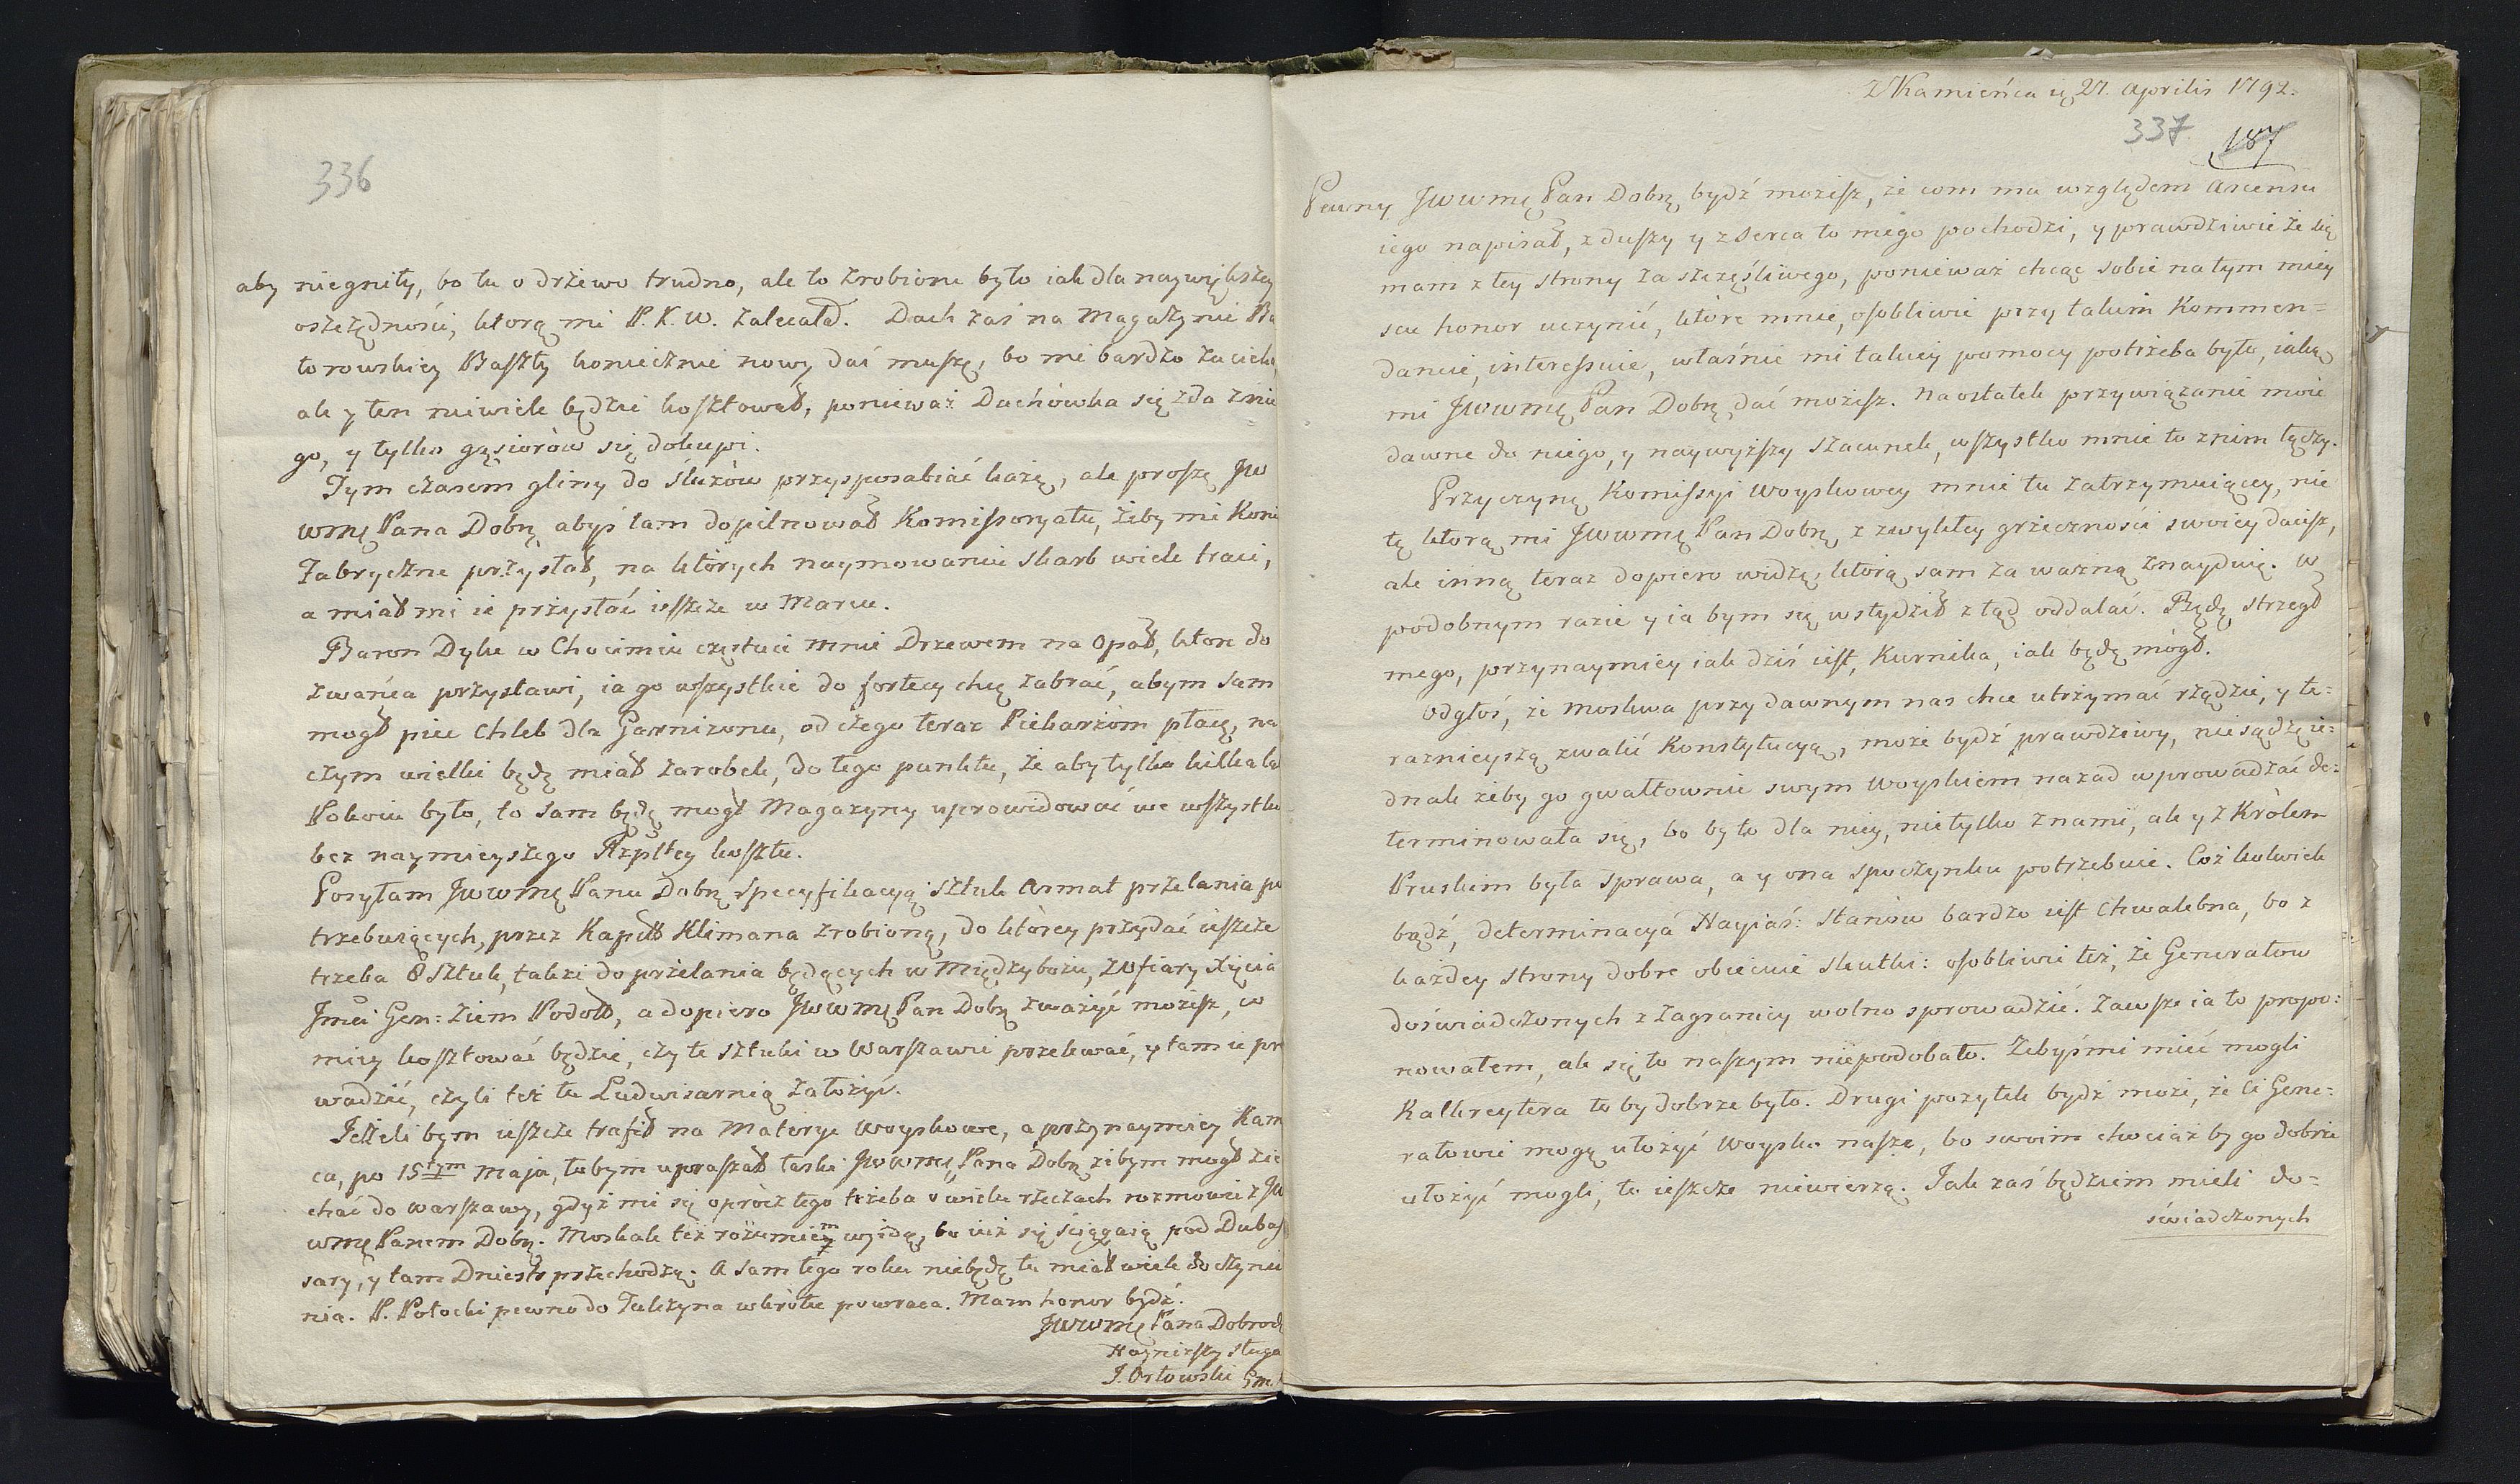 336
aby niegniły, bo tu o drzewo trudno, ale to zrobione było iak dla naywiększey
oszczędności, ktorą mi P. K. W. zalecałd. Dach zaś na Magazynie Ba
torowskiey Baszty koniecznie nowy dać muszę, bo mi bardzo zacieka
ale y ten niewiele będzie kosztował, ponieważ Dachówka się zda z nie
go, y tylko gęsiorów się dokupi.
Tym czasem gliny do śluzów przysposabiać każę, ale proszę JW
wmę Pana Dobrę abyś tam dopilnował Komissoryatu, żeby mi Koni
Fabryczne przysłał, na których naymowaniu skarb wiele traci,
a miał mi ie przysłać ieszcze w Marcu.
Baron Dyke w Chocimiu częstuie mnie Drzewem na Opał, ktore do
Zwańca przystawi, ia go wszystkie do fortecy chcę zabrać, abym sam
mogł piec Chleb dla Garnizonu, od czego teraz Piekarzom płacę, na
czym wielki będę miał zarobek, do tego punktu, że aby tylko kilka la
Pokoiu było, to sam będę mogł Magazyny uprowidować we wszystko
bez naymieyszego Rzpltey kosztu.
Posyłam JWWMę Panu Dobrę specyfikacyą sztuk Armat przelania po
trzebuiących, przez Kapit Klimana zrobioną, do którey przydać ieszcze
trzeba 8 sztuk, takze do przelania będących w Międzybożu, z ofiary Xięcia
Jmci Gen: Ziem Podol, a dopiero JWWMę Pan Dobrę zważyć możesz, co
miey kosztować będzie, czy te sztuki w Warszawie przelewać, y tam ie pro
wadzić, czyli też tu Ludwisarnią założyć.
Jeżeli bym ieszcze trafił na Materye Woyskowe, a przynaymniey Kam
ca, po 15tym Maja, tobym upraszał łaski JWWMę Pana Dobrę żebym mogł zie
chać do Warszawy, gdyż mi się oprócz tego trzeba o wielu rzeczach rozmowić z JW
WMę Panem Dobrę. Moskale też rozumiem wyidą, bo iuż się ściągaią pod Dubas
sary, y tam Dniestr przechodzą. A sam tego roku niebędę tu miał wiele do czynie
nia. P. Potocki pewno do Tulczyna wkrótce powraca. Mam honor bydź.
JWWMę Pana Dobrod
Nayniższy sługa
J. Orłowski Gm.
Z Kamieńca ię 27. Aprilis 1792.
337 187
Pewny JWWMę Pan Dobrę bydź możesz, że com mu względem Ascensu
iego napisał, z duszy y z serca to mego pochodzi, y prawdziwie że się
mam z tey strony za szczęśliwego, ponieważ chcąc sobie na tym miey
scu honor uczynić, które mnie, osobliwie przy takim Kommen=
dancie, interessuie, właśnie mi takiey pomocy potrzeba było, iaką
mi JWWMę Pan Dobrę dać możesz. Na ostatek przywiązanie moie
dawne do niego, y naywyższy szacunek, wszystko mnie to z nim łączy.
Przyczynę Komissyi Woyskowey mnie tu zatrzymuiącey, nie
tę ktorą mi JWWMę Pan Dobrę z zwykłey grzeczności swoiey daiesz,
ale inną teraz dopiero widzę, ktorą sam za ważną znayduię. W
podobnym razie y ia bym się wstydził z tąd oddalać. Będę strzegł
mego, przynaymiey iak dziś iest, Kurnika, iak będę mógł.
Odgłos, że Moskwa przy dawnym nas chce utrzymać rządzie, y te=
raznieyszą zwalić Konstytucyą, może bydź prawdziwy, niesądzę ie=
dnak żeby go gwałtownie swym Woyskiem nazad wprowadzać de=
terminowała się, bo było dla niey, nietylko z nami, ale y z Królem
Pruskim była sprawa, a y ona spoczynku potrzebuie. Coż kolwiek
bądź, determinacya Nayiaś: Stanów bardzo iest Chwalebna, bo z
każdey strony dobre obiecuie skutki: osobliwie też, że Generałow
doświadczonych z zagranicy wolno sprowadzić. Zawsze ia to propo=
nowałem, ale się to naszym niepodobało. Zebyśmi mieć mogli
Kalkreytera to by dobrze było. Drugi pożytek bydź może, że Ci Gene=
rałowie mogą ułożyć Woysko nasze, bo swoim chociaż by go dobrze
ułożyć mogli, to ieszcze niewierzą. Jak zaś będziem mieli do=
świadczonych